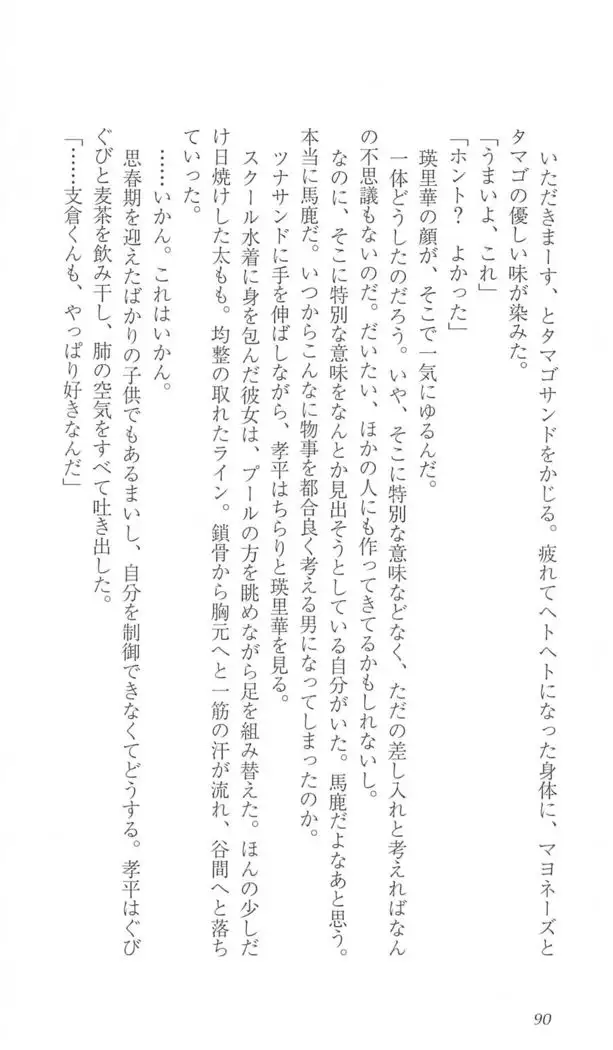 いただきまーす、とタマゴサンドをかじる。疲れてヘトヘトになった身体に、マヨネーズと
タマゴの優しい味が染みた。
「うまいよ、これ」
「ホント？　よかった」
瑛里華の顔が、そこで一気にゆるんだ。
一体どうしたのだろう。いや、そこに特別な意味などなく、ただの差し入れと考えればなん
の不思議もないのだ。だいたい、ほかの人にも作ってきてるかもしれないし。
なのに、そこに特別な意味をなんとか見出そうとしている自分がいた。馬鹿だよなあと思う。
本当に馬鹿だ。いつからこんなに物事を都合良く考える男になってしまったのか。
ツナサンドに手を伸ばしながら、孝平はちらりと瑛里華を見る。
スクール水着に身を包んだ彼女は、プールの方を眺めながら足を組み替えた。ほんの少しだ
け日焼けした太もも。均整の取れたライン。鎖骨から胸元へと一筋の汗が流れ、谷間へと落ち
ていった。
……いかん。これはいかん。
思春期を迎えたばかりの子供でもあるまいし、自分を制御できなくてどうする。孝平はぐび
ぐびと麦茶を飲み干し、肺の空気をすべて吐き出した。
「……支倉くんも、やっぱり好きなんだ」
90